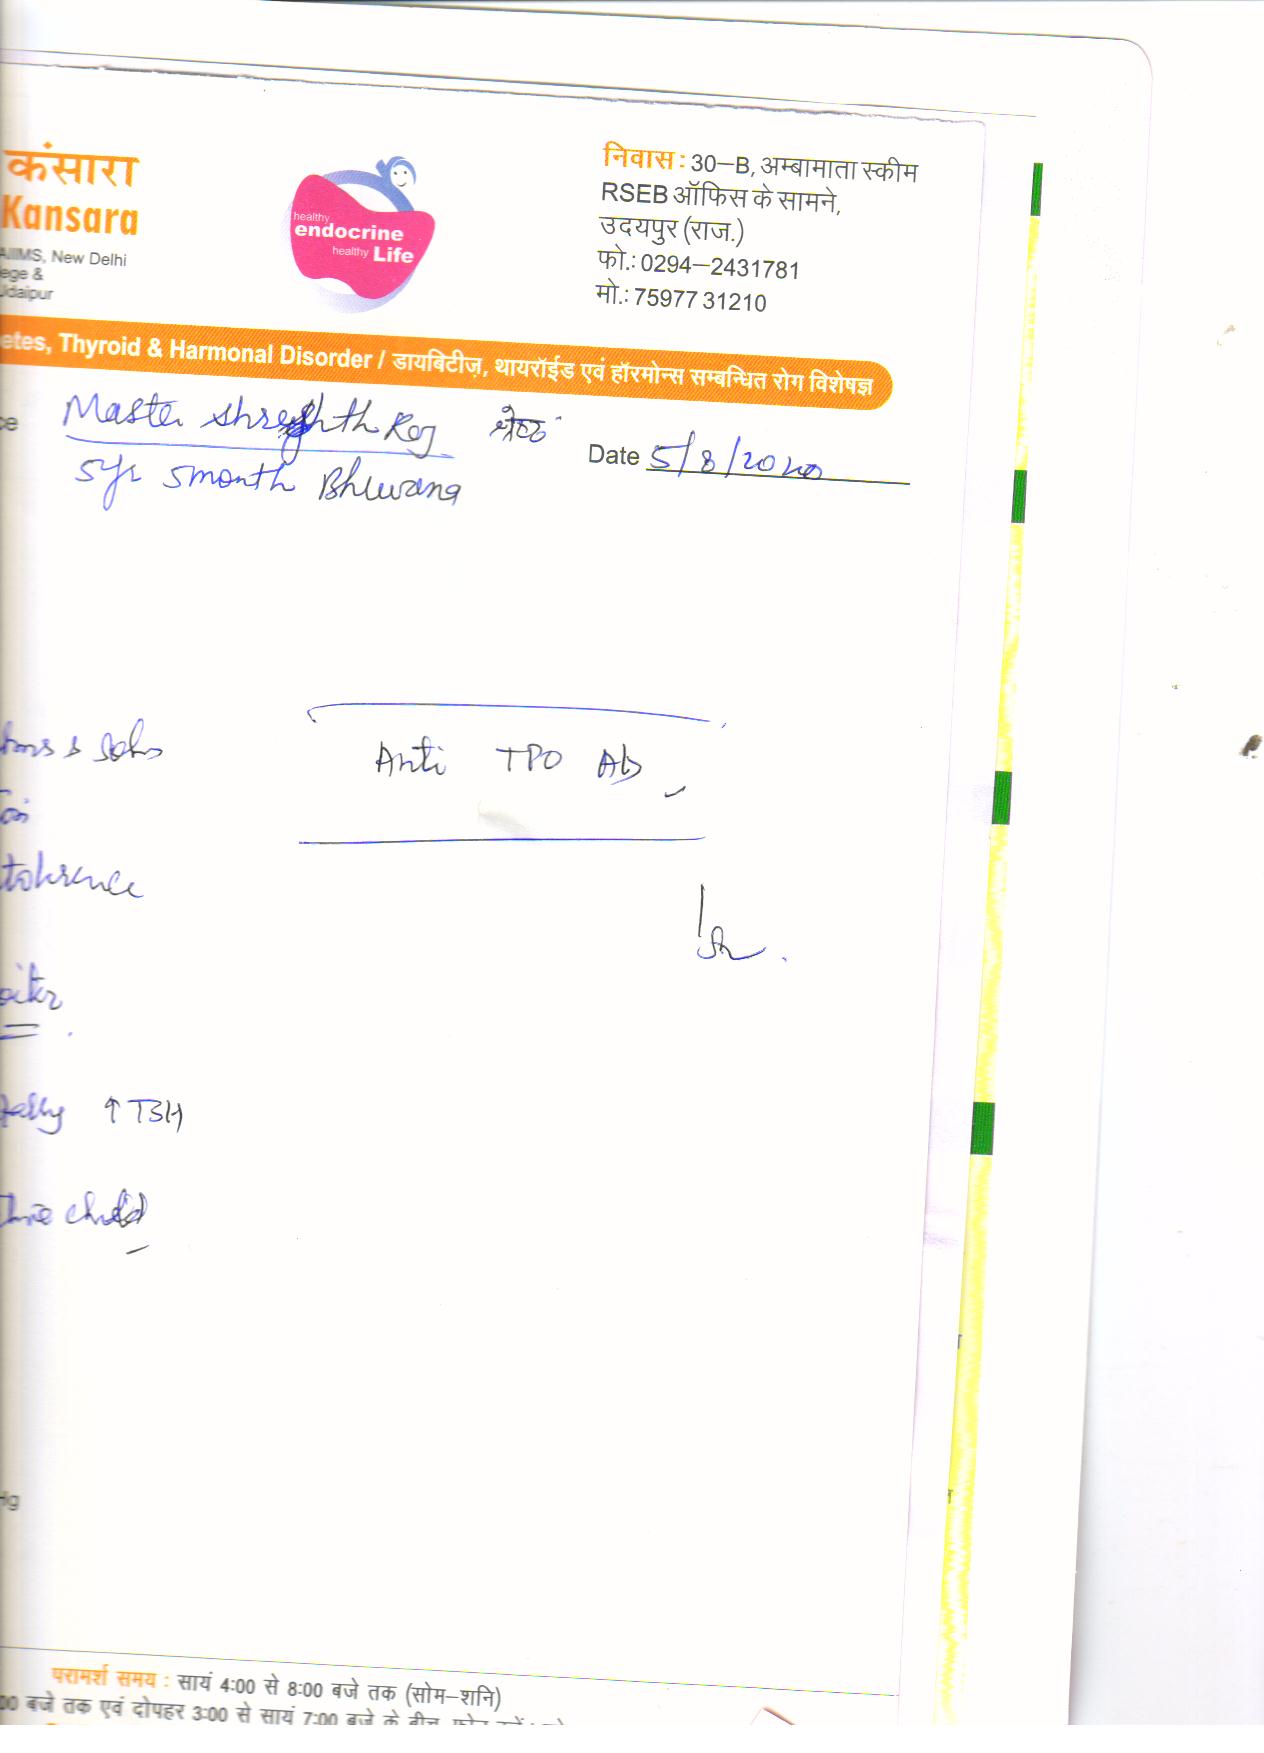 कंसारा
Kansara
AIIMS, New Delhi
ege &
Udaipur
healthy
endocrine
healthy Life
निवास : 30–B, अम्बामाता स्कीम
RSEB ऑफिस के सामने,
उदयपुर (राज.)
फो.: 0294–2431781
मो.: 75977 31210
etes, Thyroid & Harmonal Disorder / डायबिटीज़, थायरॉईड एवं हॉरमोन्स सम्बन्धित रोग विशेषज्ञ
ce Master Raj श्रेष्ठ
Date 5/8/2020
5yr 5month Bhuwana
Anti TPO Ab
tolerence
oiter
↑ TSH
child
Hg
परामर्श समय : सायं 4:00 से 8:00 बजे तक (सोम–शनि)
00 बजे तक एवं दोपहर 3:00 से सायं 7:00 बजे के बीच